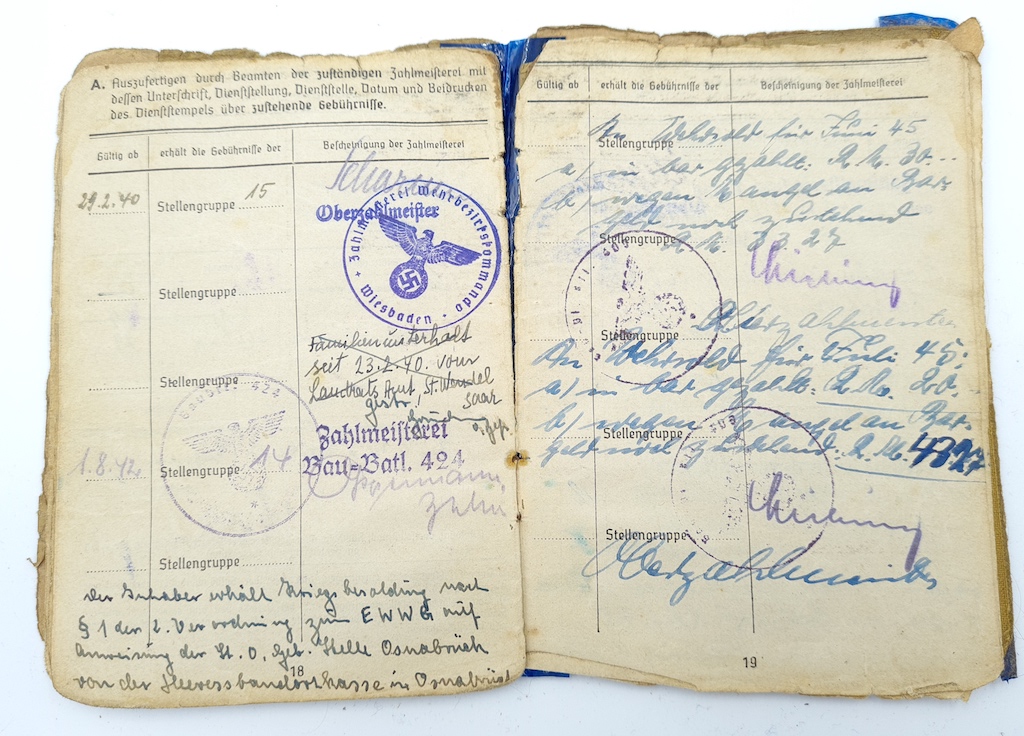 A. Auszufertigen durch Beamten der zuständigen Zahlmeisterei mit
dessen Unterschrift, Dienststellung, Dienststelle, Datum und Beidrucken
des Dienststempels über zustehende Gebührnisse.
Gültig ab erhält die Gebührnisse der Bescheinigung der Zahlmeisterei
29.2.40 Stellengruppe 15
Oberzahlmeister
Zahlmeisterei Wehrbezirkskommando
Wiesbaden
Stellengruppe
Familienunterhalt
seit 23.2.40. vom
Landrats Amt St. Wendel
Saar
gestr.
Stellengruppe
Baubtl. 424
Zahlmeisterei
Bau-Batl. 424
1.8.42 Stellengruppe 14
Stellengruppe
Der Inhaber erhält Kriegsbesoldung nach
§ 1 der 2. Verordnung zum EWWG auf
Anweisung der St. O. Geb. Stelle Osnabrück
von der Heeresstandortkasse in Osnabrück
18
Gültig ab erhält die Gebührnisse der Bescheinigung der Zahlmeisterei
An Wehrsold für Juni 45
Stellengruppe
a) in bar gezahlt. R.M. 30.--
b) wegen Mangel an Bar-
geld noch zustehend
Stellengruppe
R.M. 33.27
Oberzahlmeister
Stellengruppe
An Wehrsold für Juli 45:
a) in bar gezahlt. R.M. 20.--
b) wegen Mangel an Bar-
Stellengruppe
geld noch zustehend. R.M. 43.27
Stellengruppe
Oberzahlmeister
19